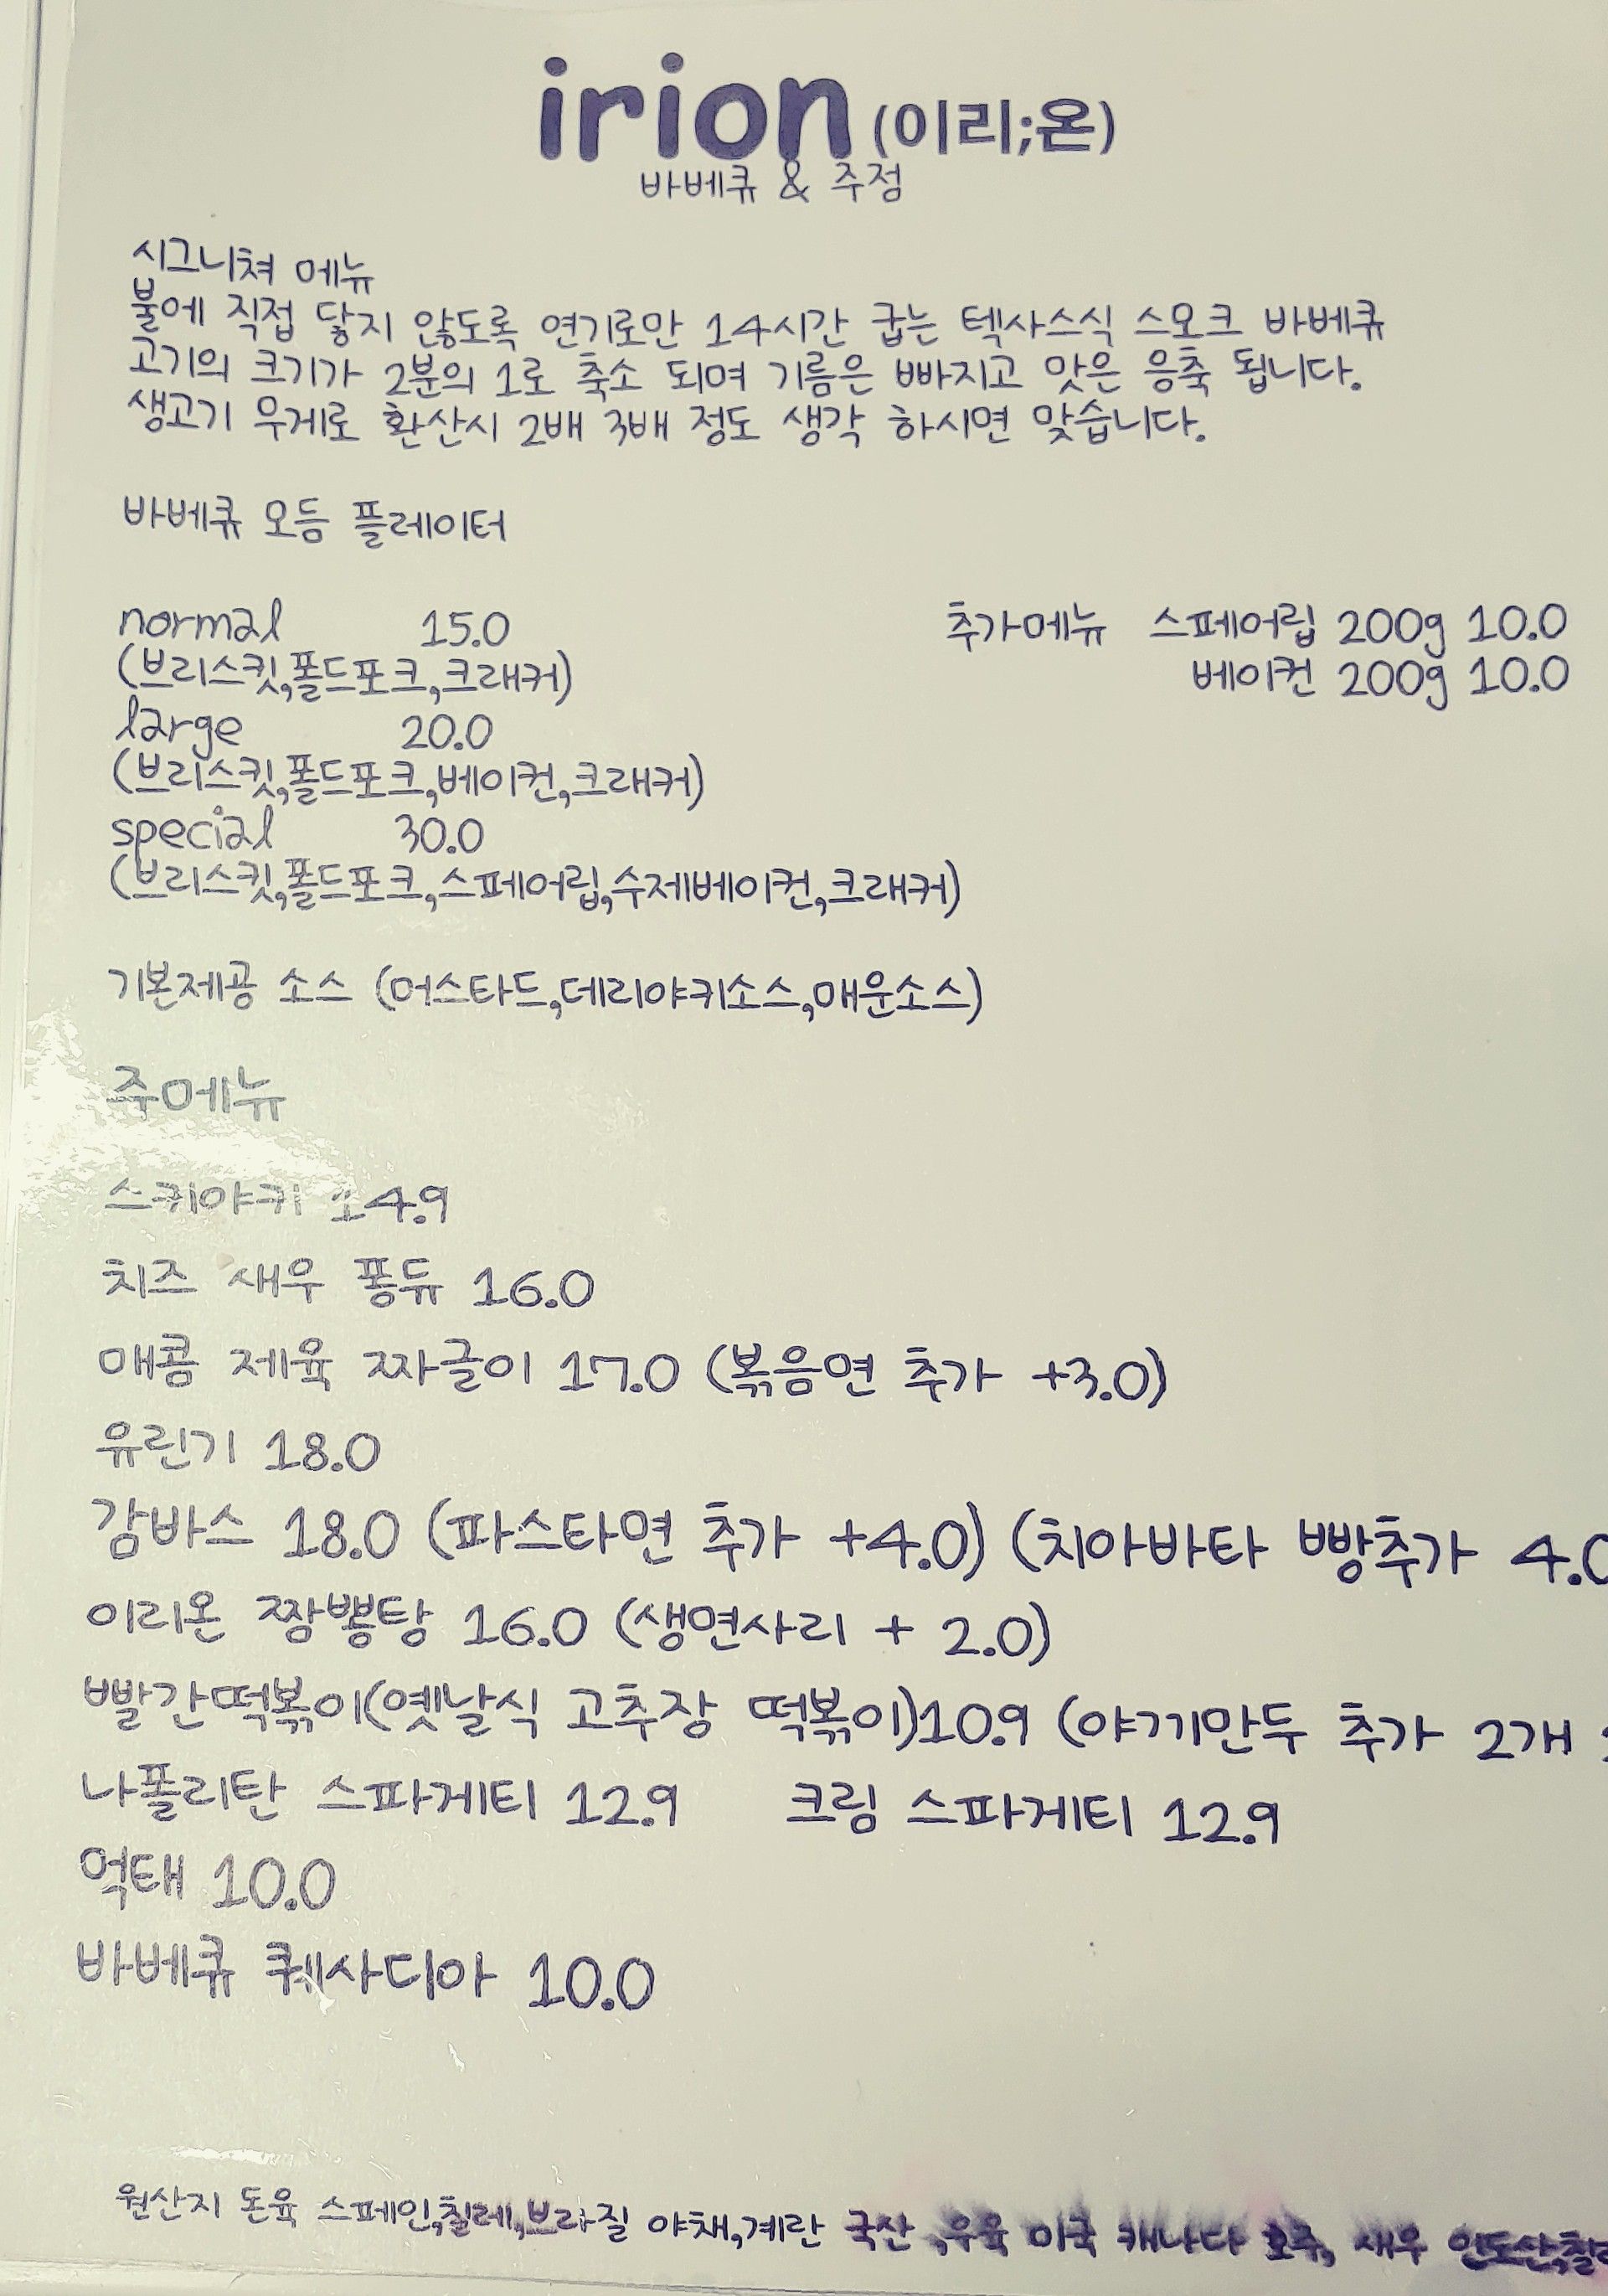 irion (이리;온)
바베큐 & 주점
시그니쳐 메뉴
불에 직접 닿지 않도록 연기로만 14시간 굽는 텍사스식 스모크 바베큐
고기의 크기가 2분의 1로 축소 되며 기름은 빠지고 맛은 응축 됩니다.
생고기 무게로 환산시 2배 3배 정도 생각 하시면 맞습니다.
바베큐 모듬 플레이터
normal 15.0 추가메뉴 스페어립 200g 10.0
(브리스킷,폴드포크,크래커) 베이컨 200g 10.0
large 20.0
(브리스킷,폴드포크,베이컨,크래커)
special 30.0
(브리스킷,폴드포크,스페어립,수제베이컨,크래커)
기본제공 소스 (머스타드,데리야키소스,매운소스)
주메뉴
스키야키 4.9
치즈 새우 퐁듀 16.0
매콤 제육 짜글이 17.0 (볶음면 추가 +3.0)
유린기 18.0
감바스 18.0 (파스타면 추가 +4.0) (치아바타 빵추가 4.0
이리온 짬뽕탕 16.0 (생면사리 + 2.0)
빨간떡볶이(옛날식 고추장 떡볶이)10.9 (야끼만두 추가 2개
나폴리탄 스파게티 12.9 크림 스파게티 12.9
먹태 10.0
바베큐 퀘사디아 10.0
원산지 돈육 스페인,칠레,브라질 야채,계란 국산 ,우육 미국 캐나다 호주, 새우 인도산,칠레